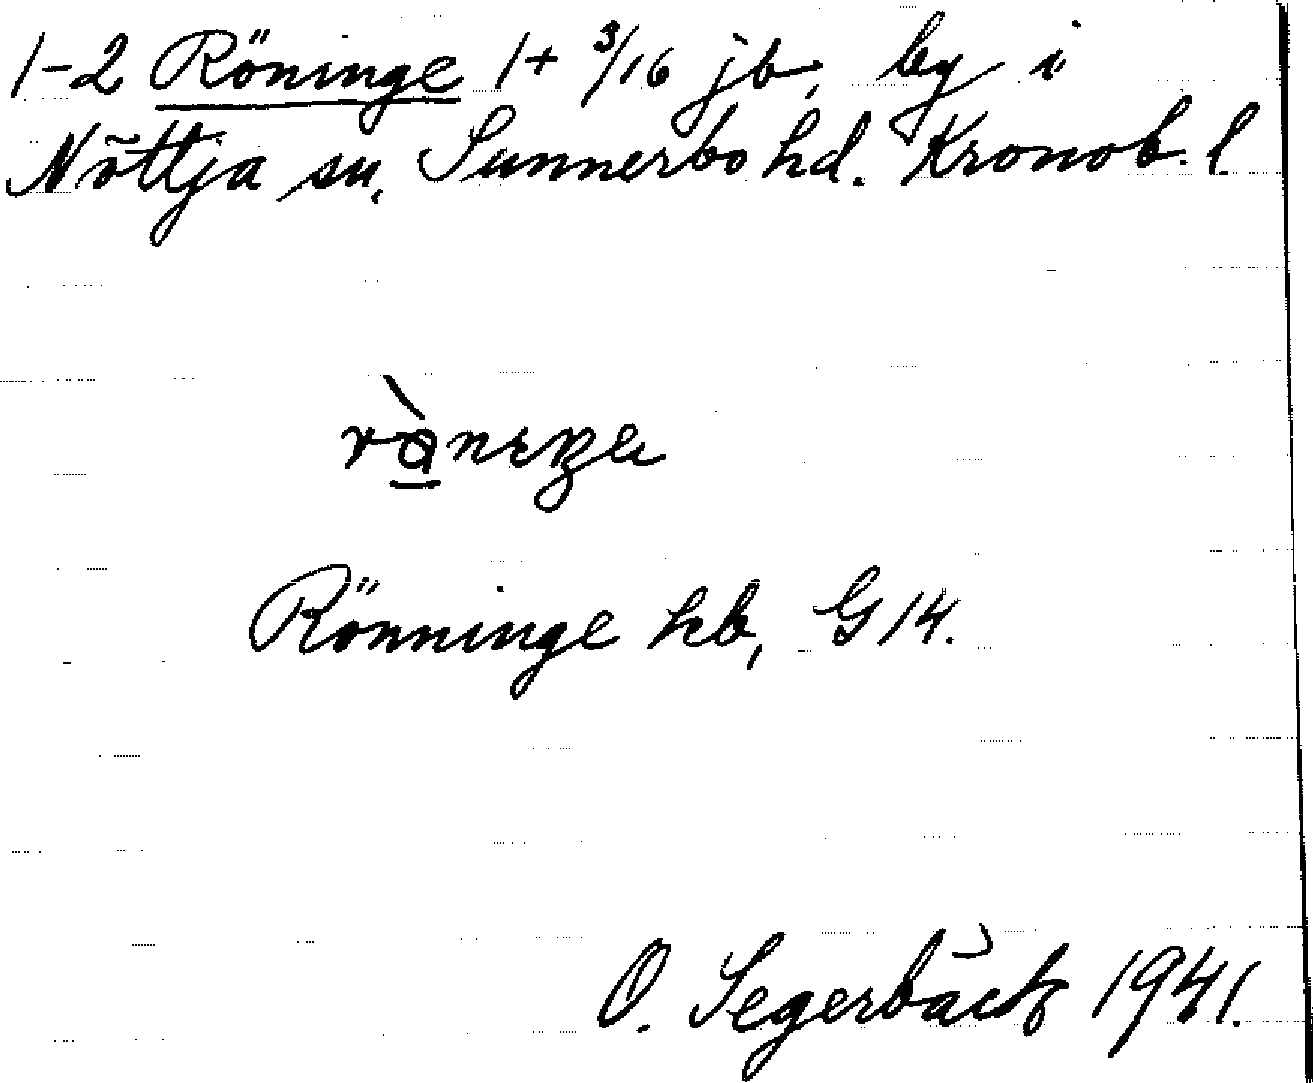 1-2 Röninge 1+ 3/16 jb, by i
Nöttja sn, Sunnerbo hd. Kronob. l.
Rönninge hb, G 14.
O. Segerbäck 1941.